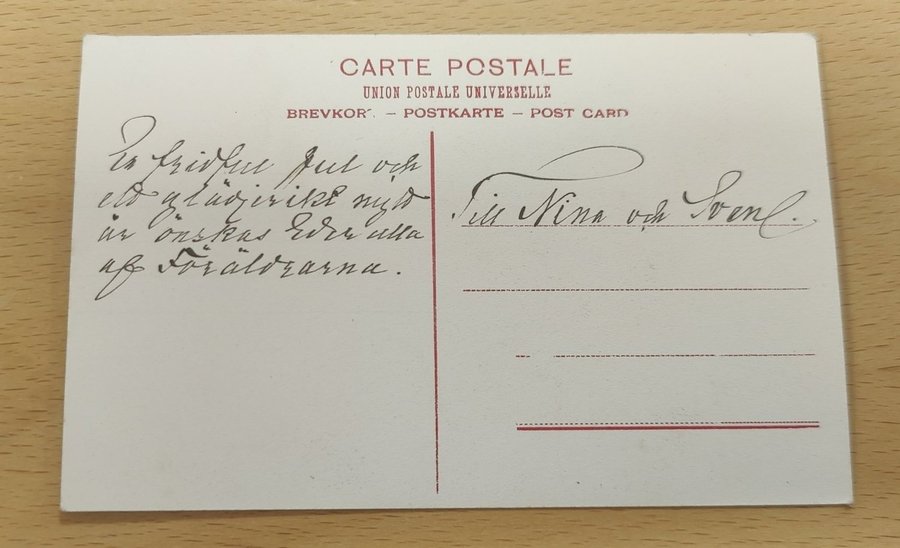 CARTE POSTALE
UNION POSTALE UNIVERSELLE
BREVKOR. – POSTKARTE – POST CARD
En fridful Jul och
ett glädjerikt nytt
år önskas Eder alla
af Föräldrarna.
Till Nina och Sven.